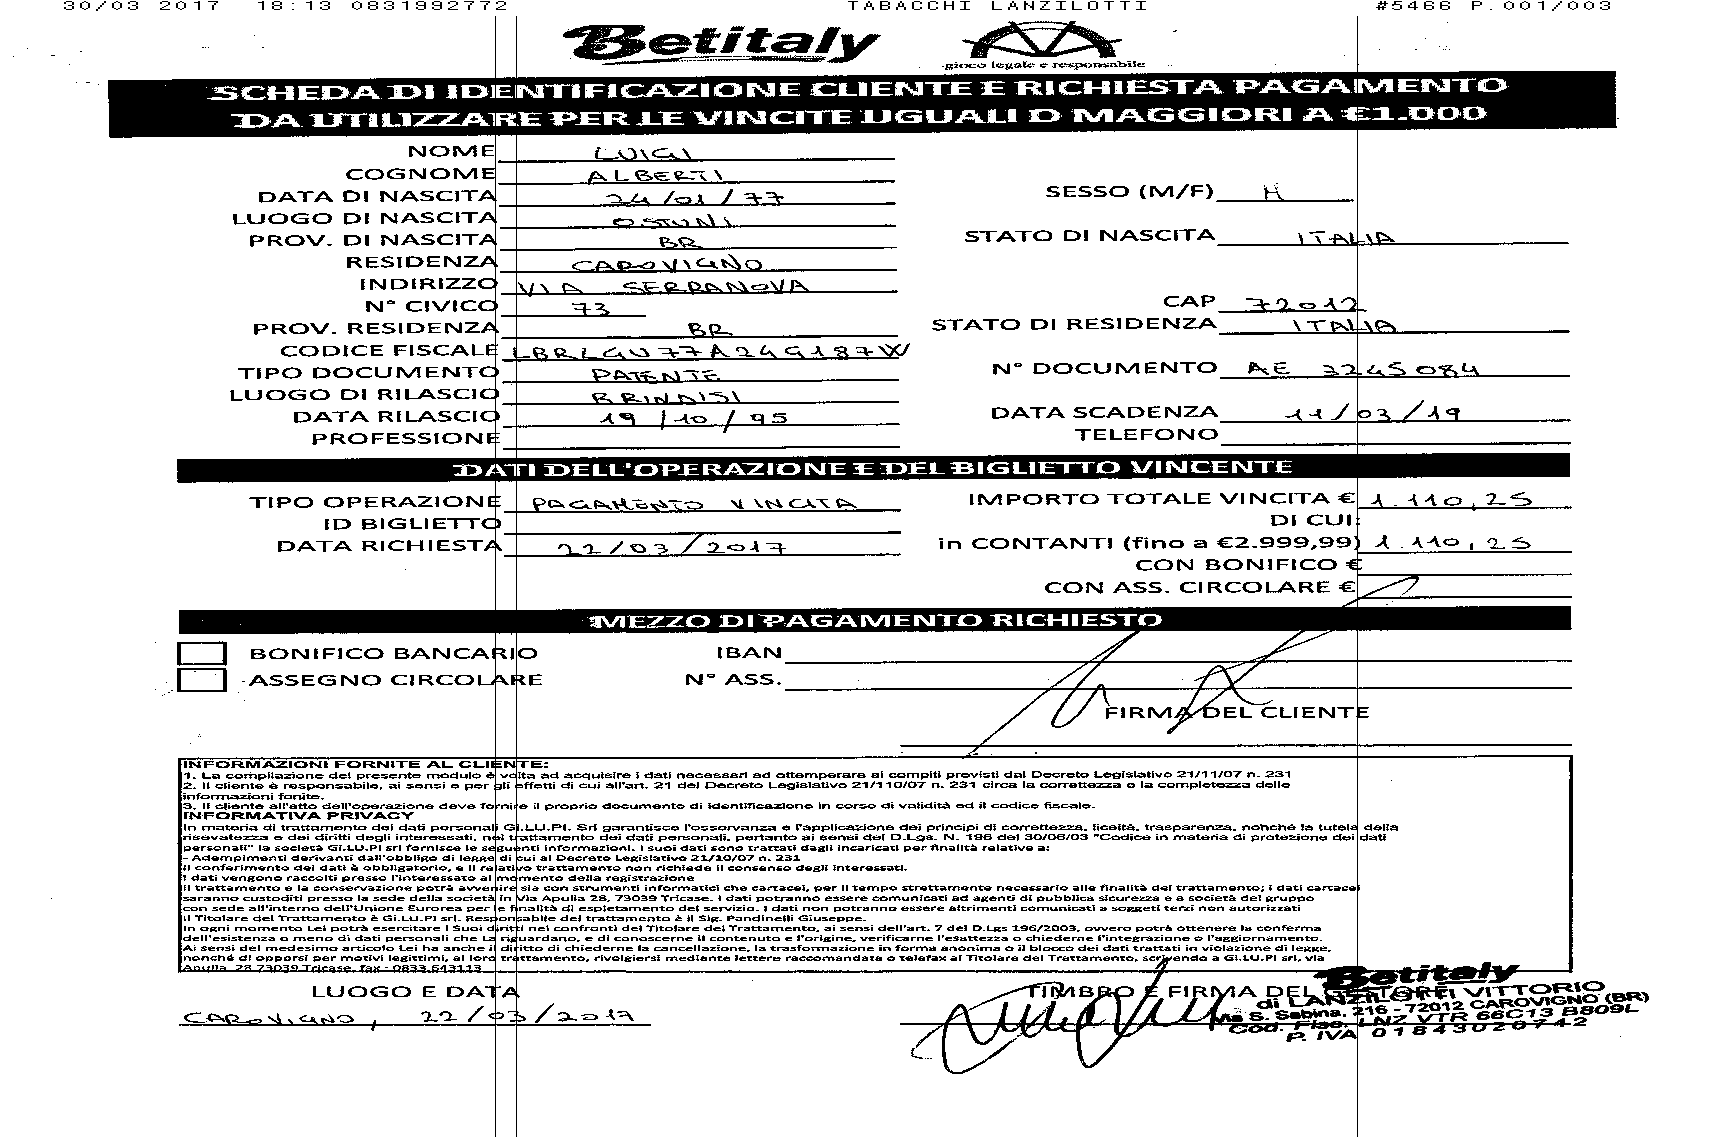 30/03 2017 18:13 0831992772 TABACCHI LANZILOTTI #5466 P.001/003
Betitaly
gioco legale e responsabile
SCHEDA DI IDENTIFICAZIONE CLIENTE E RICHIESTA PAGAMENTO
DA UTILIZZARE PER LE VINCITE UGUALI O MAGGIORI A €1.000
NOME LUIGI
COGNOME ALBERTI
DATA DI NASCITA 24/01/77 SESSO (M/F) M
LUOGO DI NASCITA OSTUNI
PROV. DI NASCITA BR STATO DI NASCITA ITALIA
RESIDENZA CAROVIGNO
INDIRIZZO VIA SERRANOVA
N° CIVICO 73 CAP 72012
PROV. RESIDENZA BR STATO DI RESIDENZA ITALIA
CODICE FISCALE LBRLGU77A24G187W
TIPO DOCUMENTO PATENTE N° DOCUMENTO AE 2245084
LUOGO DI RILASCIO BRINDISI
DATA RILASCIO 19/10/95 DATA SCADENZA 11/03/19
PROFESSIONE TELEFONO
DATI DELL'OPERAZIONE E DEL BIGLIETTO VINCENTE
TIPO OPERAZIONE PAGAMENTO VINCITA IMPORTO TOTALE VINCITA € 1.110,25
ID BIGLIETTO DI CUI:
DATA RICHIESTA 22/03/2017 in CONTANTI (fino a €2.999,99) 1.110,25
CON BONIFICO €
CON ASS. CIRCOLARE €
MEZZO DI PAGAMENTO RICHIESTO
BONIFICO BANCARIO IBAN
ASSEGNO CIRCOLARE N° ASS.
FIRMA DEL CLIENTE
INFORMAZIONI FORNITE AL CLIENTE:
1. La compilazione del presente modulo è volta ad acquisire i dati necessari ad ottemperare ai compiti previsti dal Decreto Legislativo 21/11/07 n. 231
2. Il cliente è responsabile, ai sensi e per gli effetti di cui all'art. 21 del Decreto Legislativo 21/110/07 n. 231 circa la correttezza o la completezza delle
informazioni fonite.
3. Il cliente all'atto dell'operazione deve fornire il proprio documento di identificazione in corso di validità ed il codice fiscale.
INFORMATIVA PRIVACY
In materia di trattamento dei dati personali Gi.LU.PI. Srl garantisce l'osservanza e l'applicazione dei principi di correttezza, liceità, trasparenza, nonché la tutela della
riservatezza e dei diritti degli interessati, nel trattamento dei dati personali, pertanto ai sensi del D.Lgs. N. 196 del 30/06/03 "Codice in materia di protezione dei dati
personali" la società Gi.LU.PI srl fornisce le seguenti informazioni. I suoi dati sono trattati dagli incaricati per finalità relative a:
- Adempimenti derivanti dall'obbligo di legge di cui al Decreto Legislativo 21/10/07 n. 231
Il conferimento dei dati è obbligatorio, e il relativo trattamento non richiede il consenso degli interessati.
I dati vengono raccolti presso l'interessato al momento della registrazione
Il trattamento e la conservazione potrà avvenire sia con strumenti informatici che cartacei, per il tempo strettamente necessario alle finalità del trattamento; i dati cartacei
saranno custoditi presso la sede della società in Via Apulia 28, 73039 Tricase. I dati potranno essere comunicati ad agenti di pubblica sicurezza e a società del gruppo
con sede all'interno dell'Unione Eurorea per le finalità di espletamento del servizio. I dati non potranno essere altrimenti comunicati a soggeti terzi non autorizzati
Il Titolare del Trattamento è Gi.LU.PI srl. Responsabile del trattamento è il Sig. Pandinelli Giuseppe.
In ogni momento Lei potrà esercitare i Suoi diritti nei confronti del Titolare del Trattamento, ai sensi dell'art. 7 del D.Lgs 196/2003, ovvero potrà ottenere la conferma
dell'esistenza o meno di dati personali che La riguardano, e di conoscerne il contenuto e l'origine, verificarne l'esattezza o chiederne l'integrazione o l'aggiornamento.
Ai sensi del medesimo articolo Lei ha anche il diritto di chiederne la cancellazione, la trasformazione in forma anonima o il blocco dei dati trattati in violazione di legge,
nonché di opporsi per motivi legittimi, al loro trattamento, rivolgiersi mediante lettere raccomandata o telefax al Titolare del Trattamento, scrivendo a Gi.LU.PI srl, via
Apulia, 28 73039 Tricase, fax - 0833.543113
LUOGO E DATA TIMBRO E FIRMA DEL
CAROVIGNO, 22/03/2017
Betitaly
di LANZILOTTI VITTORIO
Via S. Sabina, 216 - 72012 CAROVIGNO (BR)
Cod. Fisc. LNZ VTR 66C13 B809L
P. IVA 01843020742